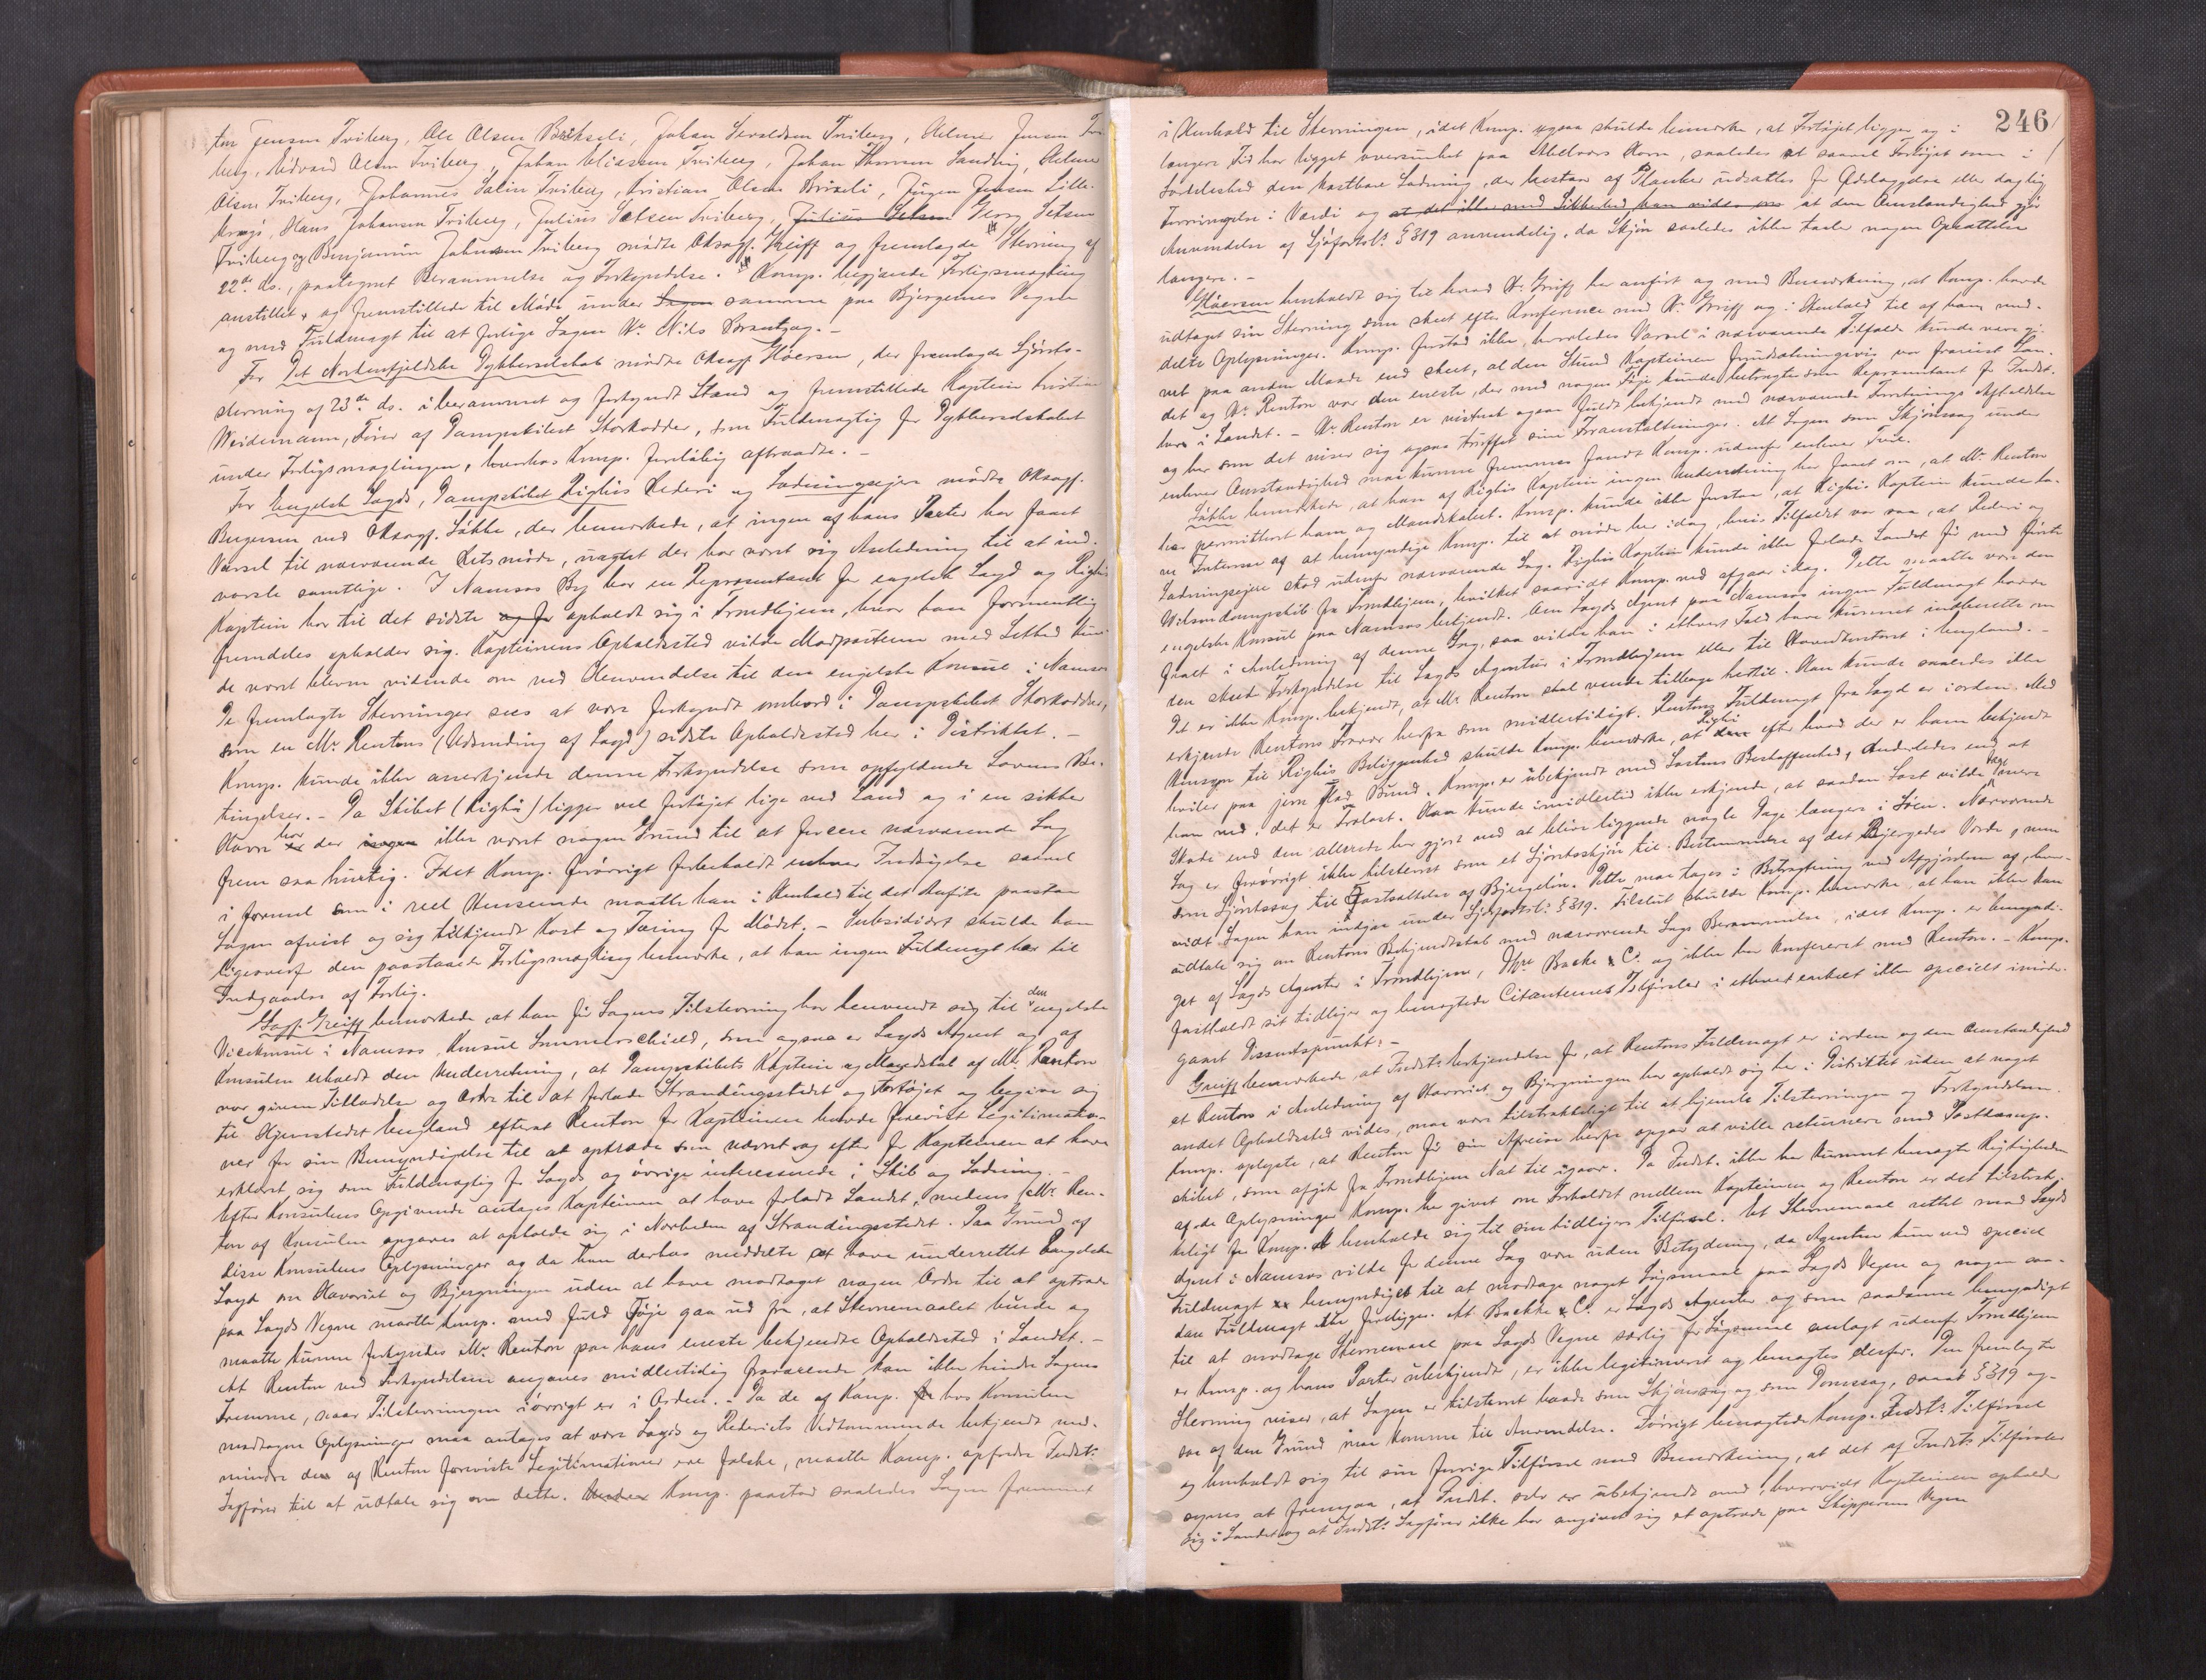 Jensen Tviberg, Ole Olsen Brikseli, Johan Sevaldsen Tviberg, Helmer Jensen Tvi
berg, Edvard Olsen Tviberg, Johan Eliassen Tviberg, Johan Thomsen Sandvig, Helmer
Olsen Tviberg, Johannes Salin Tviberg, Kristian Olsen Brixeli, Jörgen Jensen Lille-
Hans Johansen Tviberg, Julius Setsen Tviberg, Julius Setsen Georg Setsen
Tviberg og Benjamin Johansen Tviberg mödte Oksagf. Greiff og fremlagde Stevning af
22de ds., paategnet Berammelse og Forkyndelse. Komp. begjærede Forligsmægling
anstillet og fremstillede til Møde under Sagen samme paa Bjergernes Vegne
og med Fuldmagt til at forlige Sagen Hr. Nils Brandtzæg. -
For Det Nordenfjeldske Dykkerselskab mødte Oksagf. Höersen, der fremlagde Sjörets-
stevning af 23de ds. i berammet og forkyndt Stand og fremstillede Kaptein Kristian
Weidemann, Förer af Dampskibet Storkodder, som Fuldmægtig for Dykkerselskabet
under Forligsmæglingen, hvorhos Komp. foreløbig aftraadte. -
For Engelsk Lloyds, Dampskibet Righis Rederi og Ladningsejer mödte Oksagf.
Bergersen ved Oksagf. Løkke, der bemærkede, at ingen af hans Parter har faaet
Varsel til nærværende Retsmöde, uagtet der har været rig Anledning til at ind-
varsle samtlige. I Namsos By har en Repræsentant for engelsk Lloyd og Righis
Kaptein har til det sidste og for opholdt sig i Trondhjem, hvor han formentlig
fremdeles opholder sig. Kapteinens Opholdssted vilde Modparterne med Lethed kun-
de været bleven vidende om ved Henvendelse til den engelske Konsul i Namsos
De fremlagte Stevninger sees at være forkyndt ombord i Dampskibet Storkodder,
som en Mr Rentons (Udsending af Lloyd) sidste Opholdssted her i Distriktet. -
Komp. kunde ikke anerkjende denne Forkyndelse som opfyldende Lovens Be-
tingelser. - Da Skibet (Righi) ligger vel fortøjet lige ved Land og i en sikker
Havn er har der ingen ikke været nogen Grund til at forcere nærværende Sag
frem saa hurtig. Idet Komp. forövrigt forbeholdt enhver Indsigelse saavel
i formel som i reel Henseende maatte han i Henhold til det Anförte paastaa
Sagen afvist og sig tilkjendt Kost og Tæring for Mødet. - Subsidiært skulde han
ligeoverfor den paastaaede Forligsmægling bemærke, at han ingen Fuldmagt har til
Indgaaelse af Forlig.
Sagf. Greiff bemærkede at han för Sagens Tilstevning har henvendt sig til den engelske
Vicekonsul i Namsos, Konsul Sommerschield, som ogsaa er Lloyds Agent og af
Konsulen erholdt den Underretning, at Dampskibets Kaptein og Mandskab af Mr. Renton
var given Tilladelse og Ordre til at forlade Strandingsstedet og Fartöjet og begive sig
til Hjemstedet England efterat Renton for Kapteinen havde forevist Legitimatio-
ner for sin Bemyndigelse til at optræde som nævnt og efter for Kapteinen at have
erklæret sig som Fuldmægtig for Lloyds og övrige interesserede i Skib og Ladning. -
Efter Konsulens Opgivende antages Kapteinen at have forladt Landet, medens Mr. Ren-
ton af Konsulen opgaves at opholde sig i Nærheden af Strandingsstedet. Paa Grund af
disse Konsulens Oplysninger og da han derhos meddelte at have underrettet Engelske
Lloyd om Havariet og Bjergningen uden at have modtaget nogen Ordre til at optræde
paa Lloyds Vegne maatte Komp. med fuld Föje gaa ud fra, at Stevnemaalet burde og
maatte kunne forkyndes Mr. Renton paa hans eneste bekjendte Opholdssted i Landet. -
At Renton ved Forkyndelsen angaves midlertidig fraværende kan ikke hindre Sagens
Fremme, naar Tilstevningen iövrigt er i Orden. - Da de af Komp. for hos Konsulen
modtagne Oplysninger maa antages at være Lloyds og Rederiets Vedkommende bekjendt med-
mindre de af Renton foreviste Legitimationer ere falske, maatte Komp. opfordre Indst.s
Sagförer til at udtale sig om dette. Under Komp. paastod saaledes Sagen fremmet
246
i Henhold til Stevningen, idet Komp. ogsaa skulde bemærke, at Fartøjet ligger og i
længere Tid har ligget oversunket paa Abelvær Havn, saaledes at saavel Fartöjet som i
Særdeleshed den kostbare Ladning, der bestaar af Planker udsættes for Ödelæggelse eller daglig
Forringelse i Værdi og at det ikke med Sikkerhed kan vides om at den Omstændighed gjör
Anvendelse af Sjöfartsl.s § 319 anvendelig, da Skjön saaledes ikke taaler nogen Opsættelse
længere. -
Höersen henholdt sig til hvad Hr. Greiff har anfört og med Bemærkning, at Komp. havde
udtaget sin Stevning som skeet efter Konference med Hr. Greiff og i Henhold til af ham med-
delte Oplysninger. Komp. forstod ikke, hvorledes Varsel i nærværende Tilfælde kunde være gi-
vet paa anden Maade end skeet, al den Stund Kapteinen forudsætningsvis var fraveiet Lan-
det og Mr Renton var den eneste, der med nogen Föje kunde betragtes som Repræsentant for Indst.
her i Landet. - Mr. Renton er vistnok ogsaa fuldt bekjendt med nærværende Forretnings Afholdelse
og har som det viser sig ogsaa truffet sine Foranstaltninger. At Sagen som Skjönssag under
enhver Omstændighed maa kunne fremmes fandt Komp. udenfor enhver Tvil.
Løkke bemærkede, at han af Righis Kaptein ingen Underretning har faaet om, at Mr. Renton
har permitteret ham og Mandskabet. Komp. kunde ikke forstaa, at Righis Kaptein kunde ha-
ve Interesse af at bemyndige Komp. til at møde her idag, hvis Tilfældet var saa, at Rederi og
Ladningsejere stod udenfor nærværende Sag. Righis Kaptein kunde ikke forlade Landet för med förste
Wilsondampskib fra Trondhjem, hvilket saavidt Komp. ved afgaar idag. Dette maatte være den
engelske Konsul paa Namsos bekjendt. Om Lloyds Agent paa Namsos ingen Fuldmagt havde
faaet i Anledning af denne Sag, saa vilde han i ethvert Fald have kunnet indberette om
den skeede Forkyndelse til Lloyds Agentur i Trondhjem eller til Hovedkontoret i England. -
Det er ikke Komp. bekjendt, at Mr. Renton skal vende tilbage hertil. Han kunde saaledes ikke
erkjende Rentons Fravær herfra som midlertidigt. Rentons Fuldmagt fra Lloyd er iorden. Med
Hensyn til Righis Beliggenhed skulde Komp. bemærke, at den Righi efter hvad der er ham bekjendt
hviler paa jevn flad Bund. Komp. er ubekjendt med Lastens Beskaffenhed, anderledes end at
han ved, det er Trælast. Han kunde imidlertid ikke erkjende, at saadan Last vilde tage mere
Skade end den allerede har gjort ved at blive liggende nogle Dage længere i Söen. Nærværende
Sag er forövrigt ikke tilstevnet som et Sjöretsskjön til Bestemmelse af det Bjergedes Værdi, men
som Sjöretssag til Fastsættelse af Bjergelön. Dette maa tages i Betragtning ved Afgjörelsen af, hvor-
vidt Sagen kan indgaa under Sjöfartsl.s § 319. Tilslut skulde Komp. bemærke, at han ikke kan
udtale sig om Rentons Bekjendtskab med nærværende Sags Berammelse, idet Komp. er bemyndi-
get af Lloyds Agenter i Trondhjem, Hrr. Backe & Co. og ikke har konfereret med Renton. - Komp.
fastholdt sit tidligere og benægtede Citantens Tilførsler i ethvert enkelt ikke specielt imöde-
gaaet Dissentspunkt. -
Greiff bemærkede at Indst.s Erkjendelse for, at Rentons Fuldmagt er iorden og den Omstændighed
at Renton i Anledning af Havariet og Bjergningen har opholdt sig her i Distriktet uden at noget
andet Opholdssted vides, maa være tilstrækkeligt til at hjemle Tilstevningen og Forkyndelsen.
Komp. oplyste, at Renton för sin Afreise herfra opgav at ville returnere med Postdamp-
skibet, som afgik fra Trondhjem Nat til igaar. Da Indst. ikke har kunnet benægte Rigtigheden
af de Oplysninger Komp. har givet om Forholdet mellem Kapteinen og Renton er det tilstræk-
keligt for Komp. at henholde sig til sin tidligere Tilförsel. Et Stevnemaal rettet mod Lloyds
Agent i Namsos vilde for denne Sag være uden Betydning, da Agenten kun ved speciel
Fuldmagt er bemyndiget til at modtage noget Søgsmaal paa Lloyds Vegne og nogen saa-
dan Fuldmagt ikke foreligger. At Backe & Co. er Lloyds Agenter og som saadanne bemyndigt
til at modtage Stevnemaal paa Lloyds Vegne særlig for Søgsmaal anlagt udenfor Trondhjem
er Komp. og hans Parter ubekjendt, er ikke legitimeret og benægtes derfor. Den fremlagte
Stevning viser, at Sagen er tilstevnet baade som Skjönssag og som Domssag, saaat § 319 og-
saa af den Grund maa komme til Anvendelse. Forövrigt benægtede Komp. Indst.s Tilførsel
og henholdt sig til sin forrige Tilførsel med Bemærkning, at det af Indst.s Tilførsler
synes at fremgaa, at Indst. selv er ubekjendt med, hvorvidt Kapteinen opholder
sig i Landet og at Indst.s Sagförer ikke har angivet sig at optræde paa Skipperens Vegne